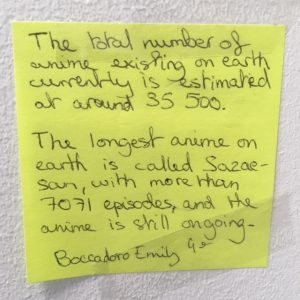 The total number of
anime existing on earth
currently is estimated
at around 35 500.
The longest anime on
earth is called Sazae-
san, with more than
7071 episodes, and the
anime is still ongoing.
Boccadoro Emily